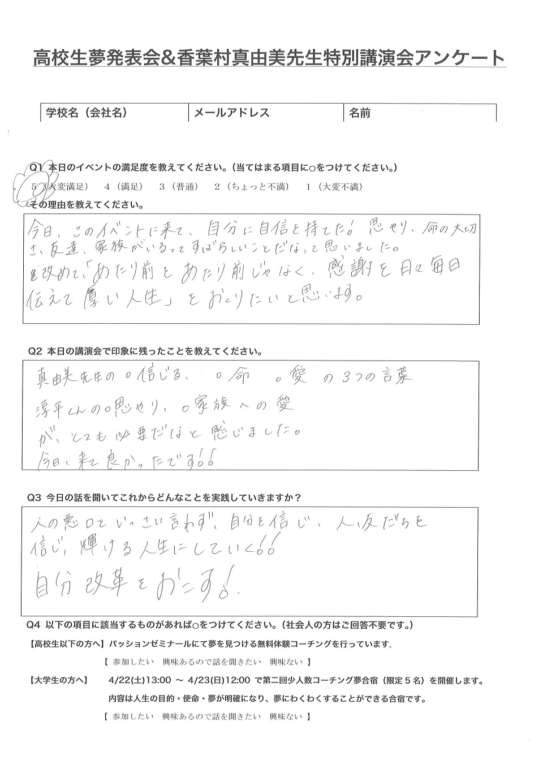 高校生夢発表会&香葉村真由美先生特別講演会アンケート
学校名（会社名） メールアドレス 名前
Q1 本日のイベントの満足度を教えてください。（当てはまる項目に○をつけてください。）
5（大変満足） 4（満足） 3（普通） 2（ちょっと不満） 1（大変不満）
その理由を教えてください。
今日、このイベントに来て、自分に自信を持てた! 思やり、命の大切
さ、友達、家族がいるってすばらしいことだなって思いました。
改めて、「あたり前をあたり前じゃなく、感謝を日々毎日
伝えて厚い人生」をおくりたいと思います。
Q2 本日の講演会で印象に残ったことを教えてください。
真由美先生の○信じる、○命 ○愛 の3つの言葉
淳平くんの○思やり、○家族への愛
が、とても必要だなと感じました。
今日、来て良かったです!!
Q3 今日の話を聞いてこれからどんなことを実践していきますか？
人の悪口をいっさい言わず、自分を信じ、人、友だちを
信じ、輝ける人生にしていく!!
自分改革をおこす!
Q4 以下の項目に該当するものがあれば○をつけてください。（社会人の方はご回答不要です。）
【高校生以下の方へ】パッションゼミナールにて夢を見つける無料体験コーチングを行っています．
【 参加したい 興味あるので話を聞きたい 興味ない 】
【大学生の方へ】 4/22(土)13:00 ～ 4/23(日)12:00 で第二回少人数コーチング夢合宿（限定５名）を開催します。
内容は人生の目的・使命・夢が明確になり、夢にわくわくすることができる合宿です。
【 参加したい 興味あるので話を聞きたい 興味ない 】